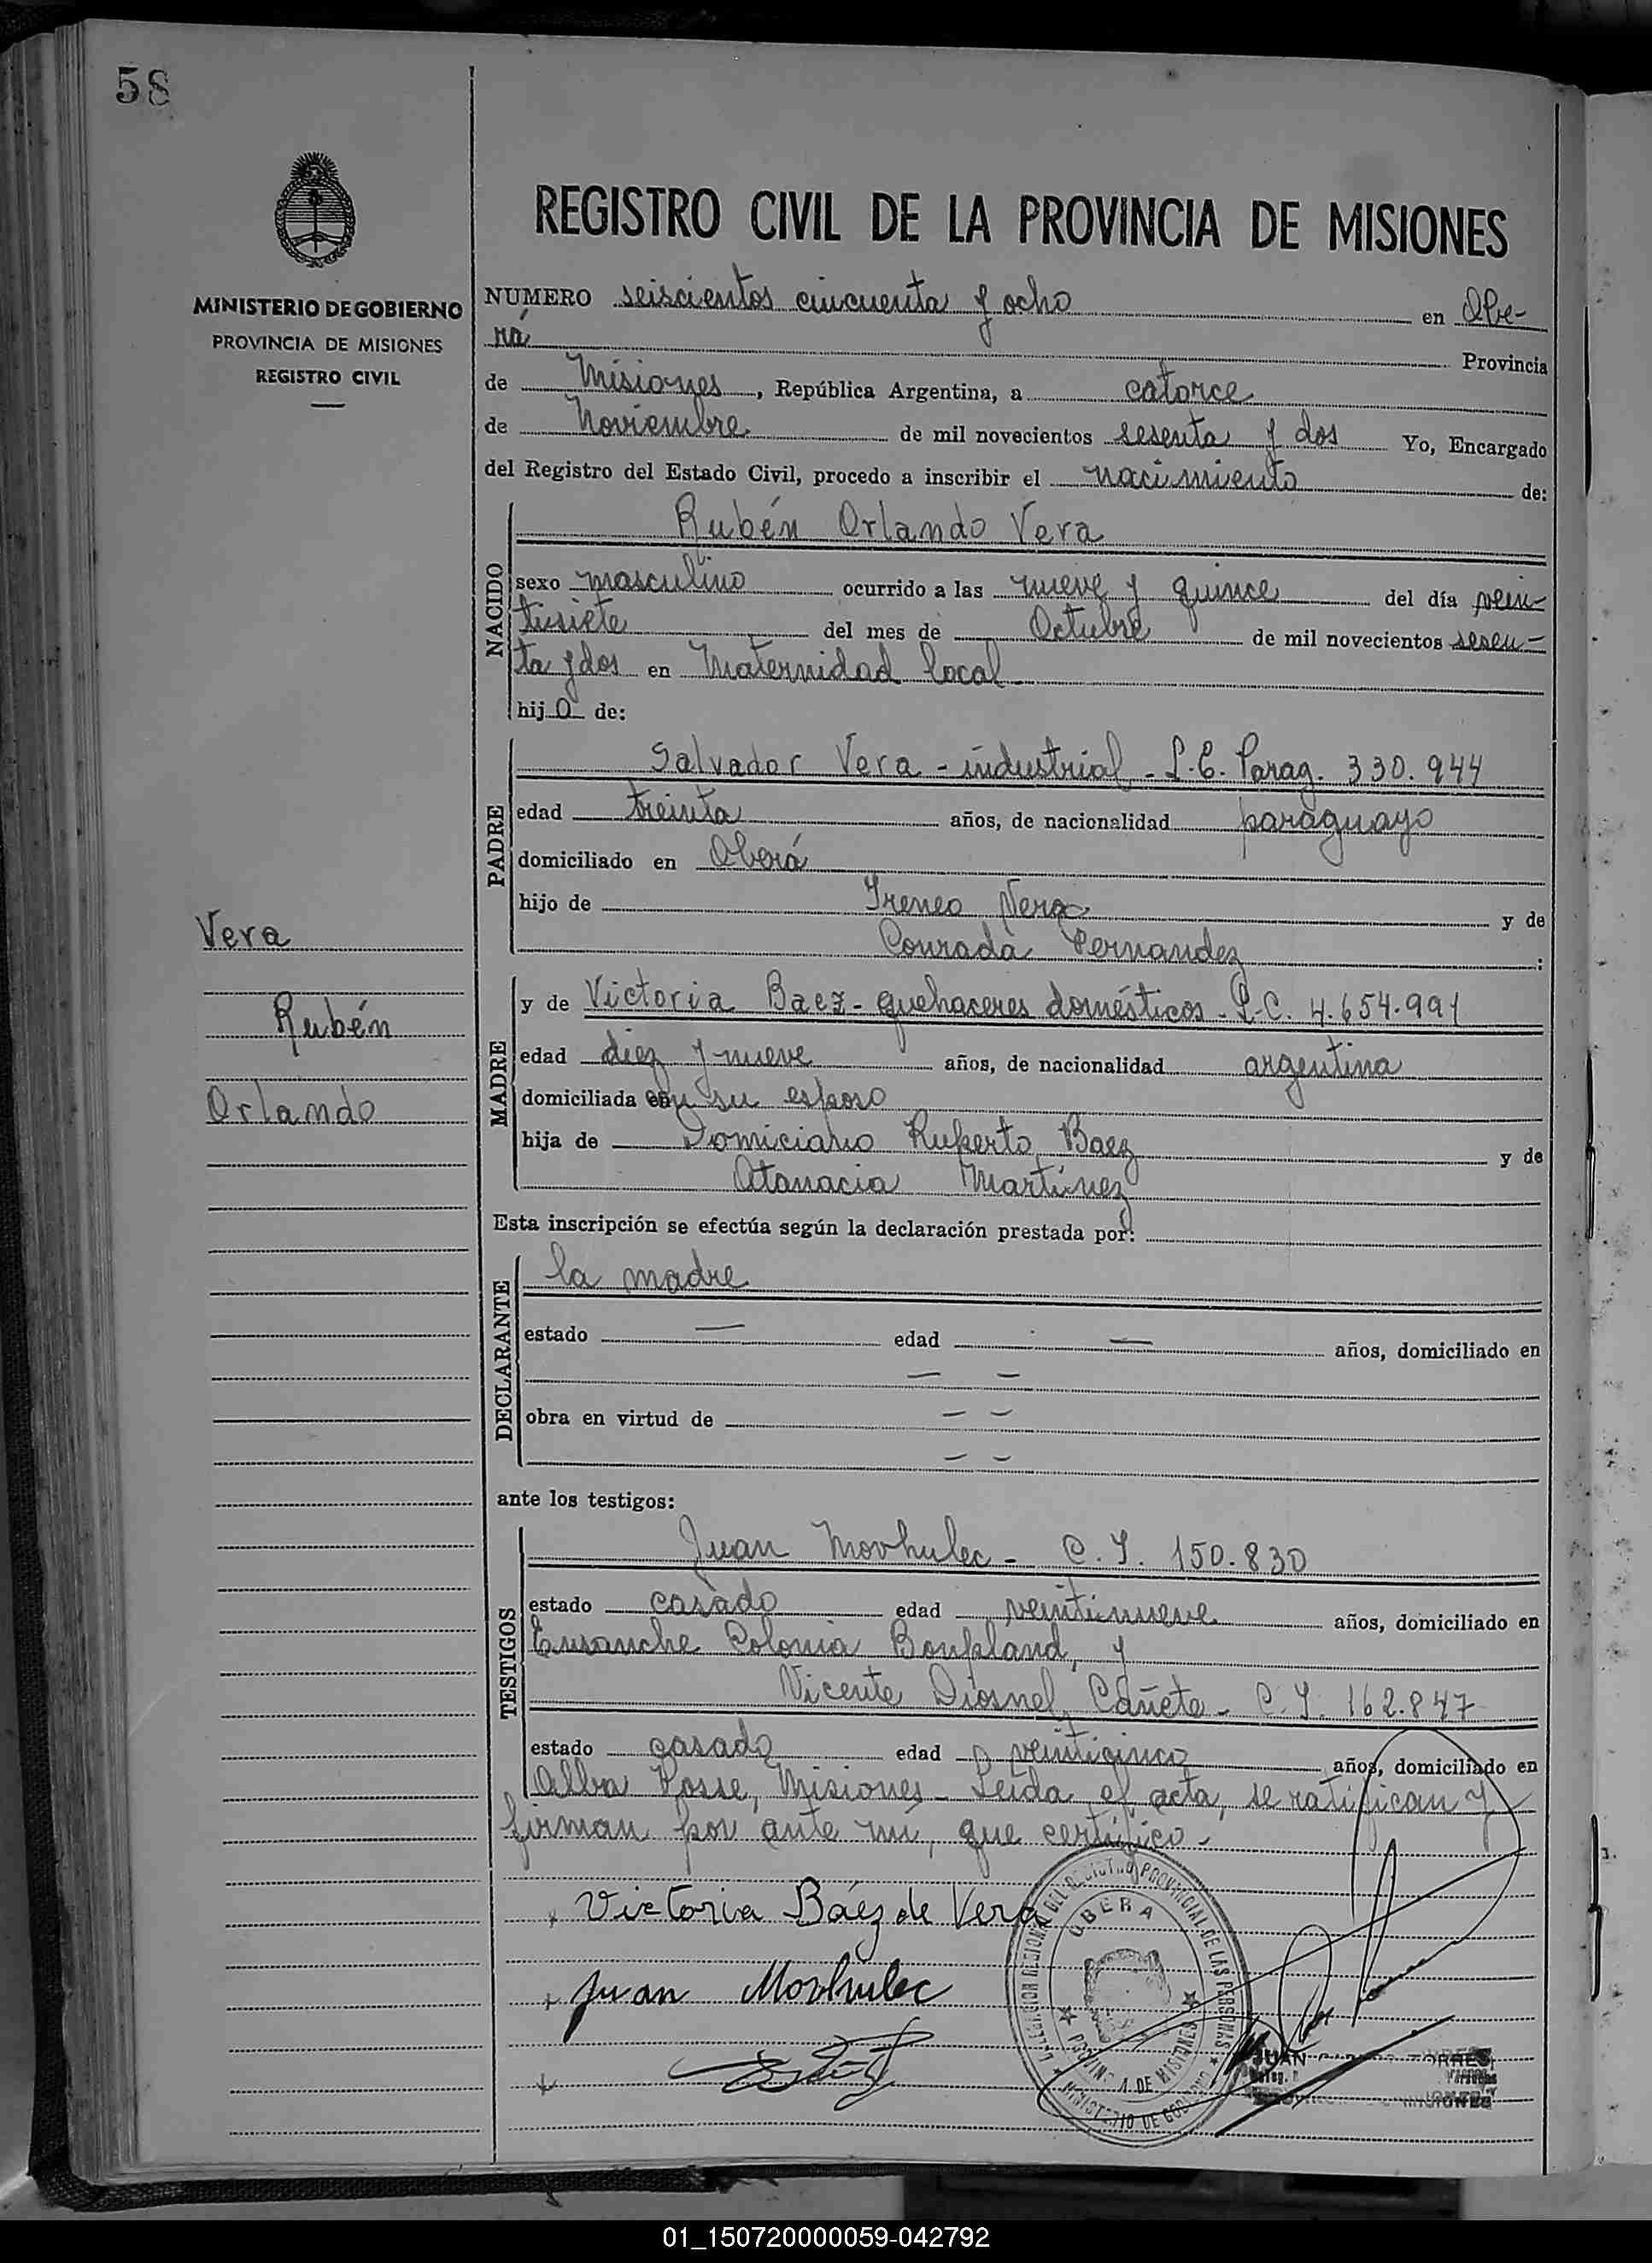 58
MINISTERIO DE GOBIERNO
PROVINCIA DE MISIONES
REGISTRO CIVIL
REGISTRO CIVIL DE LA PROVINCIA DE MISIONES
NUMERO seiscientos cincuenta y ocho en Obe-
rá Provincia
de Misiones, República Argentina, a catorce
de Noviembre de mil novecientos sesenta y dos Yo, Encargado
del Registro del Estado Civil, procedo a inscribir el nacimiento de:
NACIDO
Rubén Orlando Vera
sexo masculino ocurrido a las nueve y quince del día vein-
tisiete del mes de Octubre de mil novecientos sesen-
ta y dos en Maternidad local
hijo de:
PADRE
Salvador Vera - industrial - L.E. Parag. 330.944
edad treinta años, de nacionalidad paraguayo
domiciliado en Oberá
hijo de Ireneo Vera y de
Conrada Fernandez :
Vera
Rubén
Orlando
MADRE
y de Victoria Baez - quehaceres domésticos - L.C. 4.654.991
edad diez y nueve años, de nacionalidad argentina
domiciliada con su esposo
hija de Domiciano Ruperto Baez y de
Atanacia Martínez
Esta inscripción se efectúa según la declaración prestada por:
DECLARANTE
la madre
estado — edad — años, domiciliado en
— —
obra en virtud de — —
— —
ante los testigos:
TESTIGOS
Juan Movhulec - C.I. 150.830
estado casado edad veintinueve años, domiciliado en
Ensanche Colonia Bonpland, y
Vicente Diosnel Cañete - C.I. 162.847
estado casado edad veinticinco años, domiciliado en
Alba Posse, Misiones - Leida el acta, se ratifican y
firman por ante mí, que certifico -
Victoria Báez de Vera
Juan Movhulec
DELEGACION REGIONAL DEL REGISTRO PROVINCIAL DE LAS PERSONAS
OBERA
PROVINCIA DE MISIONES
MINISTERIO DE GOBIERNO
JUAN TORRES
MISIONES
01_150720000059-042792